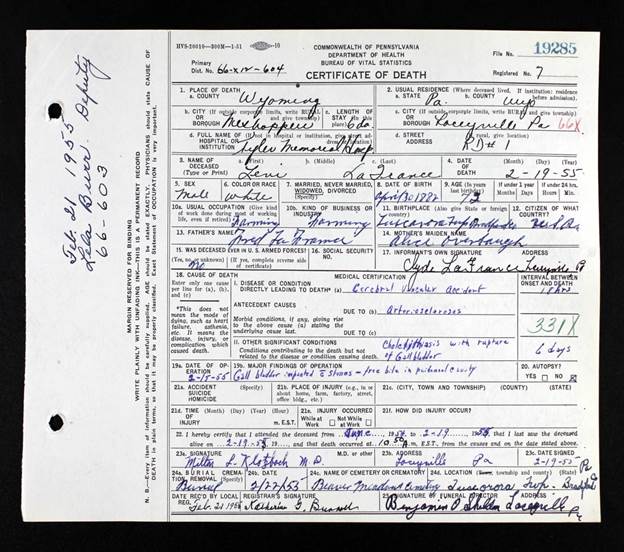 HVS-20019—300M—1-51
10
COMMONWEALTH OF PENNSYLVANIA
DEPARTMENT OF HEALTH
BUREAU OF VITAL STATISTICS
CERTIFICATE OF DEATH
Primary
Dist. No. 66-XIV-604
File No. 19285
Registered No. 7
1. PLACE OF DEATH
a. COUNTY Wyoming
2. USUAL RESIDENCE (Where deceased lived. If institution: residence before admission)
a. STATE Pa. b. COUNTY Wyo
b. CITY (If outside corporate limits, write RURAL and give township)
OR BOROUGH Meshoppen
c. LENGTH OF STAY 6 da.
c. CITY (If outside corporate limits, write RURAL and give township)
OR BOROUGH Laceyville Pa 66X
d. FULL NAME OF (If not in hospital or institution, give street address)
HOSPITAL OR INSTITUTION Tyler Memorial Hosp.
d. STREET ADDRESS (If rural, give location)
RD# 1
3. NAME OF DECEASED (Type or Print)
a. (First) Levi b. (Middle) c. (Last) LaFrance
4. DATE OF DEATH (Month) (Day) (Year)
2-19-55
5. SEX Male
6. COLOR OR RACE White
7. MARRIED, NEVER MARRIED, WIDOWED, DIVORCED (Specify)
8. DATE OF BIRTH April 30 1882
9. AGE 72
If under 1 year
If under 24 hrs.
10a. USUAL OCCUPATION (Give kind of work done during most of working life, even if retired) Farming
10b. KIND OF BUSINESS OR INDUSTRY Farming
11. BIRTHPLACE (Also give State or foreign country) Tuscarora twp Bradford Co
12. CITIZEN OF WHAT COUNTRY?
13. FATHER'S NAME Fred La France
14. MOTHER'S MAIDEN NAME Alice Overbaugh
15. WAS DECEASED EVER IN U.S. ARMED FORCES?
(Yes, no or unk.) (If yes, complete reverse side of certificate) No
16. SOCIAL SECURITY NO.
17. INFORMANT'S OWN SIGNATURE ADDRESS
Clyde LaFrance Laceyville Pa
18. CAUSE OF DEATH
MEDICAL CERTIFICATION
INTERVAL BETWEEN ONSET AND DEATH
Enter only one cause per line for (a), (b) and (c)
I. DISEASE OR CONDITION DIRECTLY LEADING TO DEATH* (a) Cerebral vascular accident
*This does not mean the mode of dying, such as heart failure, asthenia, etc. It means the disease, injury, or complication, which caused death.
ANTECEDENT CAUSES
Morbid conditions, if any, giving rise to the above cause (a) stating the underlying cause last.
DUE TO (b) Arteriosclerosis
DUE TO (c)
331X
II. OTHER SIGNIFICANT CONDITIONS
Conditions contributing to the death but not related to the disease or condition causing death.
Cholelithiasis with rupture of Gall bladder 6 days
19a. DATE OF OPERATION 2-15-55
19b. MAJOR FINDINGS OF OPERATION Gall bladder impacted & Stones — free bile in peritoneal cavity
20. AUTOPSY?
YES NO
21a. ACCIDENT SUICIDE HOMICIDE (Specify)
21b. PLACE OF INJURY (e.g., in or about home, farm, factory, street, office bldg., etc.)
21c. (CITY, TOWN AND TOWNSHIP) (COUNTY) (STATE)
21d. TIME OF INJURY (Month) (Day) (Year) (Hour) m. E.S.T.
21e. INJURY OCCURRED While at Work Not While at Work
21f. HOW DID INJURY OCCUR?
22. I hereby certify that I attended the deceased from June 1954 to 2-19 1955, that I last saw the deceased
alive on 2-19-55, and that death occurred at 10:50 A m. E.S.T., from the causes and on the date stated above.
23a. SIGNATURE M.D. or other 23b. ADDRESS 23c. DATE SIGNED
Milton L. Klotzbach M.D. Laceyville Pa 2-19-55
24a. BURIAL, CREMATION, REMOVAL (Specify) Burial
24b. DATE 2/22/55
24c. NAME OF CEMETERY OR CREMATORY Beaver Meadows Cemetery
24d. LOCATION (City, borough, township and county) (State) Tuscarora Twp. Bradford Pa
DATE REC'D BY LOCAL REG. Feb. 21 1955
REGISTRAR'S SIGNATURE Katherine G. Russell
25. SIGNATURE OF FUNERAL DIRECTOR ADDRESS
Benjamin P. Shelden Laceyville Pa
MARGIN RESERVED FOR BINDING
WRITE PLAINLY WITH UNFADING INK—THIS IS A PERMANENT RECORD
N. B.—Every item of information should be carefully supplied. AGE should be stated EXACTLY. PHYSICIANS should state CAUSE OF
DEATH in plain terms, so that it may be properly classified. Exact Statement of OCCUPATION is very important.
Feb. 21 1955
Lela Burr. Deputy
66-603